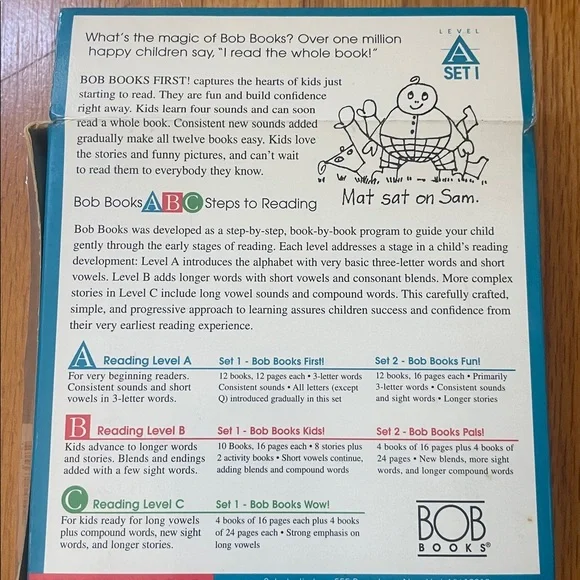 What's the magic of Bob Books? Over one million
happy children say, "I read the whole book!"
LEVEL
A
SET 1
BOB BOOKS FIRST! captures the hearts of kids just
starting to read. They are fun and build confidence
right away. Kids learn four sounds and can soon
read a whole book. Consistent new sounds added
gradually make all twelve books easy. Kids love
the stories and funny pictures, and can't wait
to read them to everybody they know.
Mat sat on Sam.
Bob Books ABC Steps to Reading
Bob Books was developed as a step-by-step, book-by-book program to guide your child
gently through the early stages of reading. Each level addresses a stage in a child's reading
development: Level A introduces the alphabet with very basic three-letter words and short
vowels. Level B adds longer words with short vowels and consonant blends. More complex
stories in Level C include long vowel sounds and compound words. This carefully crafted,
simple, and progressive approach to learning assures children success and confidence from
their very earliest reading experience.
A Reading Level A
For very beginning readers.
Consistent sounds and short
vowels in 3-letter words.
Set 1 - Bob Books First!
12 books, 12 pages each • 3-letter words
Consistent sounds • All letters (except
Q) introduced gradually in this set
Set 2 - Bob Books Fun!
12 books, 16 pages each • Primarily
3-letter words • Consistent sounds
and sight words • Longer stories
B Reading Level B
Kids advance to longer words
and stories. Blends and endings
added with a few sight words.
Set 1 - Bob Books Kids!
10 Books, 16 pages each • 8 stories plus
2 activity books • Short vowels continue,
adding blends and compound words
Set 2 - Bob Books Pals!
4 books of 16 pages plus 4 books of
24 pages • New blends, more sight
words, and longer compound words
C Reading Level C
For kids ready for long vowels
plus compound words, new sight
words, and longer stories.
Set 1 - Bob Books Wow!
4 books of 16 pages each plus 4 books
of 24 pages each • Strong emphasis on
long vowels
BOB
BOOKS®